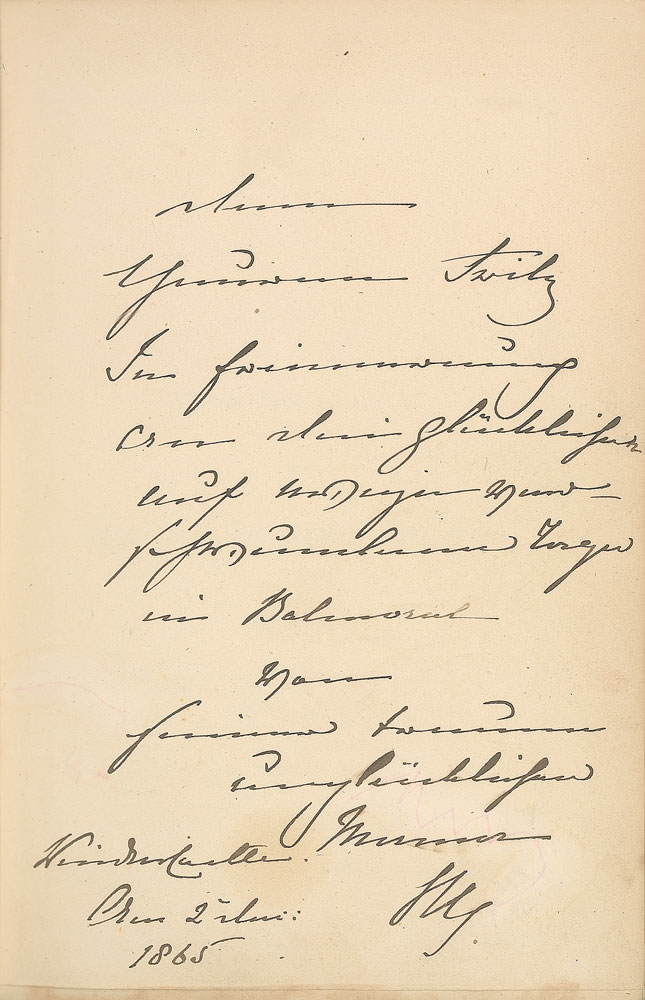 dem
Theuren Fritz
In Erinnerung
an die glücklichen
auf ewig ver-
schwundenen Tage
in Balmoral
von
seiner treuen
unglücklichen
Mama
Windsor Castle.
den 2
1865